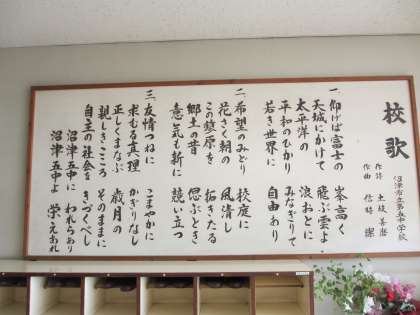 校歌
沼津市立第五中学校
作詩 土岐善麿
作曲 信時潔
一、仰げば富士の 峯高く
天城にかけて 飛ぶ雲よ
太平洋の 浪おとに
平和のひかり みなぎりて
若き世界に 自由あり
二、希望のみどり 校庭に
花さく朝の 風清し
この󠄁原を 拓きたる
郷土の昔 偲ぶとき
意気も新に 競い立つ
三、友情つねに こまやかに
求むる真理 かぎりなし
正しくまなぶ 歳月の
親しきこころ そのままに
自主の社会を きづくべし
沼津五中に われらあり
沼津五中よ 栄えあれ